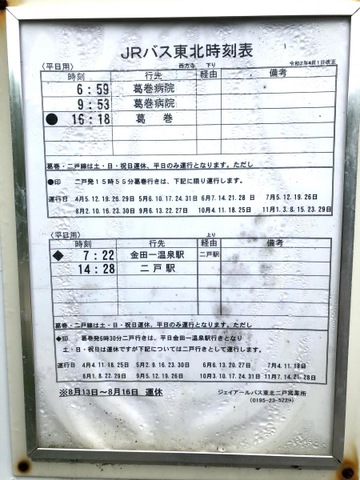 JRバス東北時刻表
〈平日用〉 西方寺 下り 令和2年4月1日改正
時刻 行先 経由 備考
6:59 葛巻病院
9:53 葛巻病院
● 16:18 葛巻
葛巻・二戸線は土・日・祝日運休、平日のみ運行となります。ただし
●印 二戸発15時55分葛巻行きは、下記に限り運行します。
運行日 4月5.12.19.26.29日 5月6.10.17.24.31日 6月7.14.21.28日 7月5.12.19.26日
8月2.10.16.23.30日 9月6.13.20.27日 10月4.11.18.25日 11月1.3.8.15.23.29日
〈平日用〉 上り
時刻 行先 経由 備考
◆ 7:22 金田一温泉駅 二戸駅
14:28 二戸駅
葛巻・二戸線は土・日・祝日運休、平日のみ運行となります。ただし
◆印 葛巻発6時30分二戸行きは、平日金田一温泉駅行きとなり
土・日・祝日は運休ですが下記については二戸行きとして運行します。
運行日 4月4.11.18.25日 5月2.9.16.23.30日 6月6.13.20.27日 7月4.11.18日
6月1.8.22.29日 9月5.12.19.26日 10月3.10.17.24.31日 11月7.14.21.28日
※8月13日〜8月16日 運休
ジェイアールバス東北二戸営業所
(0195-23-